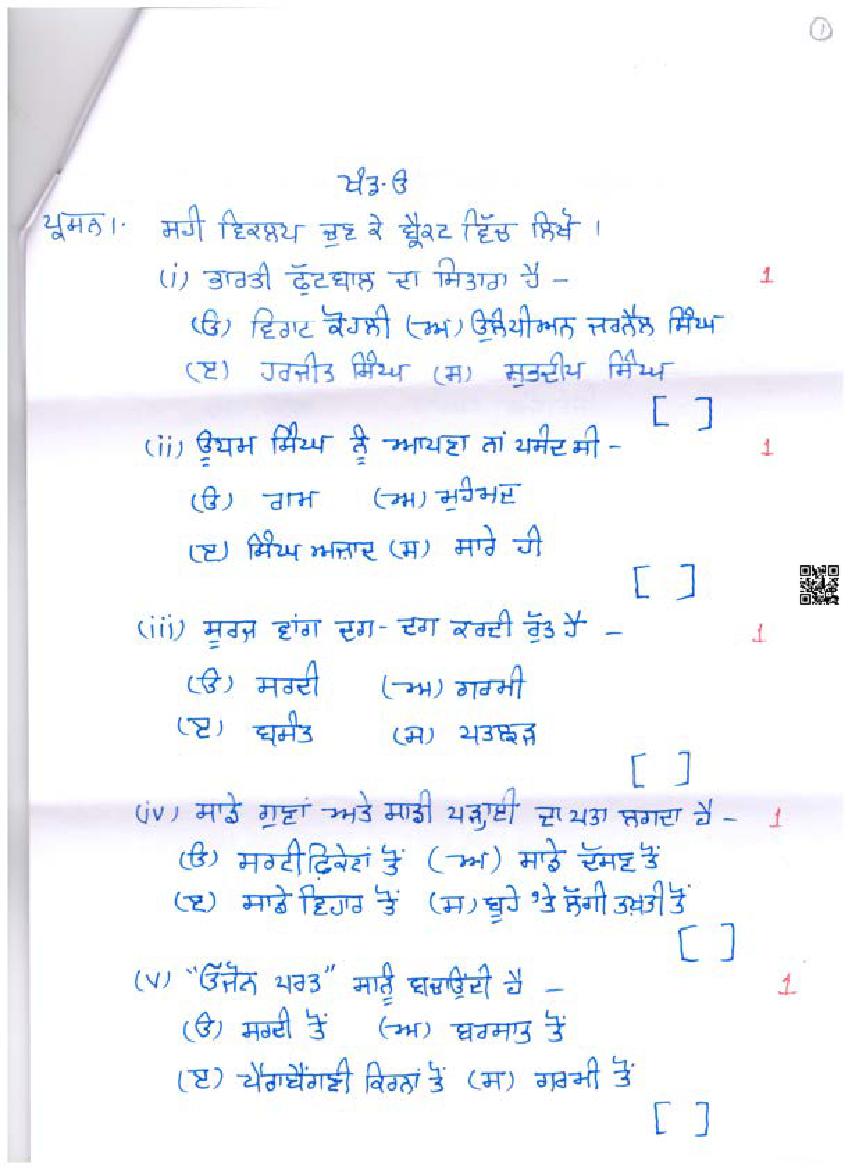 1
ਖੰਡ-ੳ
ਪ੍ਰਸ਼ਨ1. ਸਹੀ ਵਿਕਲਪ ਚੁਣ ਕੇ ਬ੍ਰੈਕਟ ਵਿੱਚ ਲਿਖੋ ।
(i) ਭਾਰਤੀ ਫੁੱਟਬਾਲ ਦਾ ਸਿਤਾਰਾ ਹੈ – 1
(ੳ) ਵਿਰਾਟ ਕੋਹਲੀ (ਅ) ਉਲੰਪੀਅਨ ਜਰਨੈਲ ਸਿੰਘ
(ੲ) ਹਰਜੀਤ ਸਿੰਘ (ਸ) ਸੁਰਦੀਪ ਸਿੰਘ
[ ]
(ii) ਊਧਮ ਸਿੰਘ ਨੂੰ ਆਪਣਾ ਨਾਂ ਪਸੰਦ ਸੀ – 1
(ੳ) ਰਾਮ (ਅ) ਮੁਹੰਮਦ
(ੲ) ਸਿੰਘ ਅਜ਼ਾਦ (ਸ) ਸਾਰੇ ਹੀ
[ ]
(iii) ਸੂਰਜ ਵਾਂਗ ਦਗ-ਦਗ ਕਰਦੀ ਰੁੱਤ ਹੈ – 1
(ੳ) ਸਰਦੀ (ਅ) ਗਰਮੀ
(ੲ) ਬਸੰਤ (ਸ) ਪਤਝੜ
[ ]
(iv) ਸਾਡੇ ਗੁਣਾਂ ਅਤੇ ਸਾਡੀ ਪੜ੍ਹਾਈ ਦਾ ਪਤਾ ਲਗਦਾ ਹੈ – 1
(ੳ) ਸਰਟੀਫ਼ਿਕੇਟਾਂ ਤੋਂ (ਅ) ਸਾਡੇ ਦੱਸਣ ਤੋਂ
(ੲ) ਸਾਡੇ ਵਿਹਾਰ ਤੋਂ (ਸ) ਬੂਹੇ 'ਤੇ ਲੱਗੀ ਤਖ਼ਤੀ ਤੋਂ
[ ]
(v) “ਓਜੋਨ ਪਰਤ” ਸਾਨੂੰ ਬਚਾਉਂਦੀ ਹੈ – 1
(ੳ) ਸਰਦੀ ਤੋਂ (ਅ) ਬਰਸਾਤ ਤੋਂ
(ੲ) ਪੈਰਾਬੈਂਗਣੀ ਕਿਰਨਾਂ ਤੋਂ (ਸ) ਗਰਮੀ ਤੋਂ
[ ]